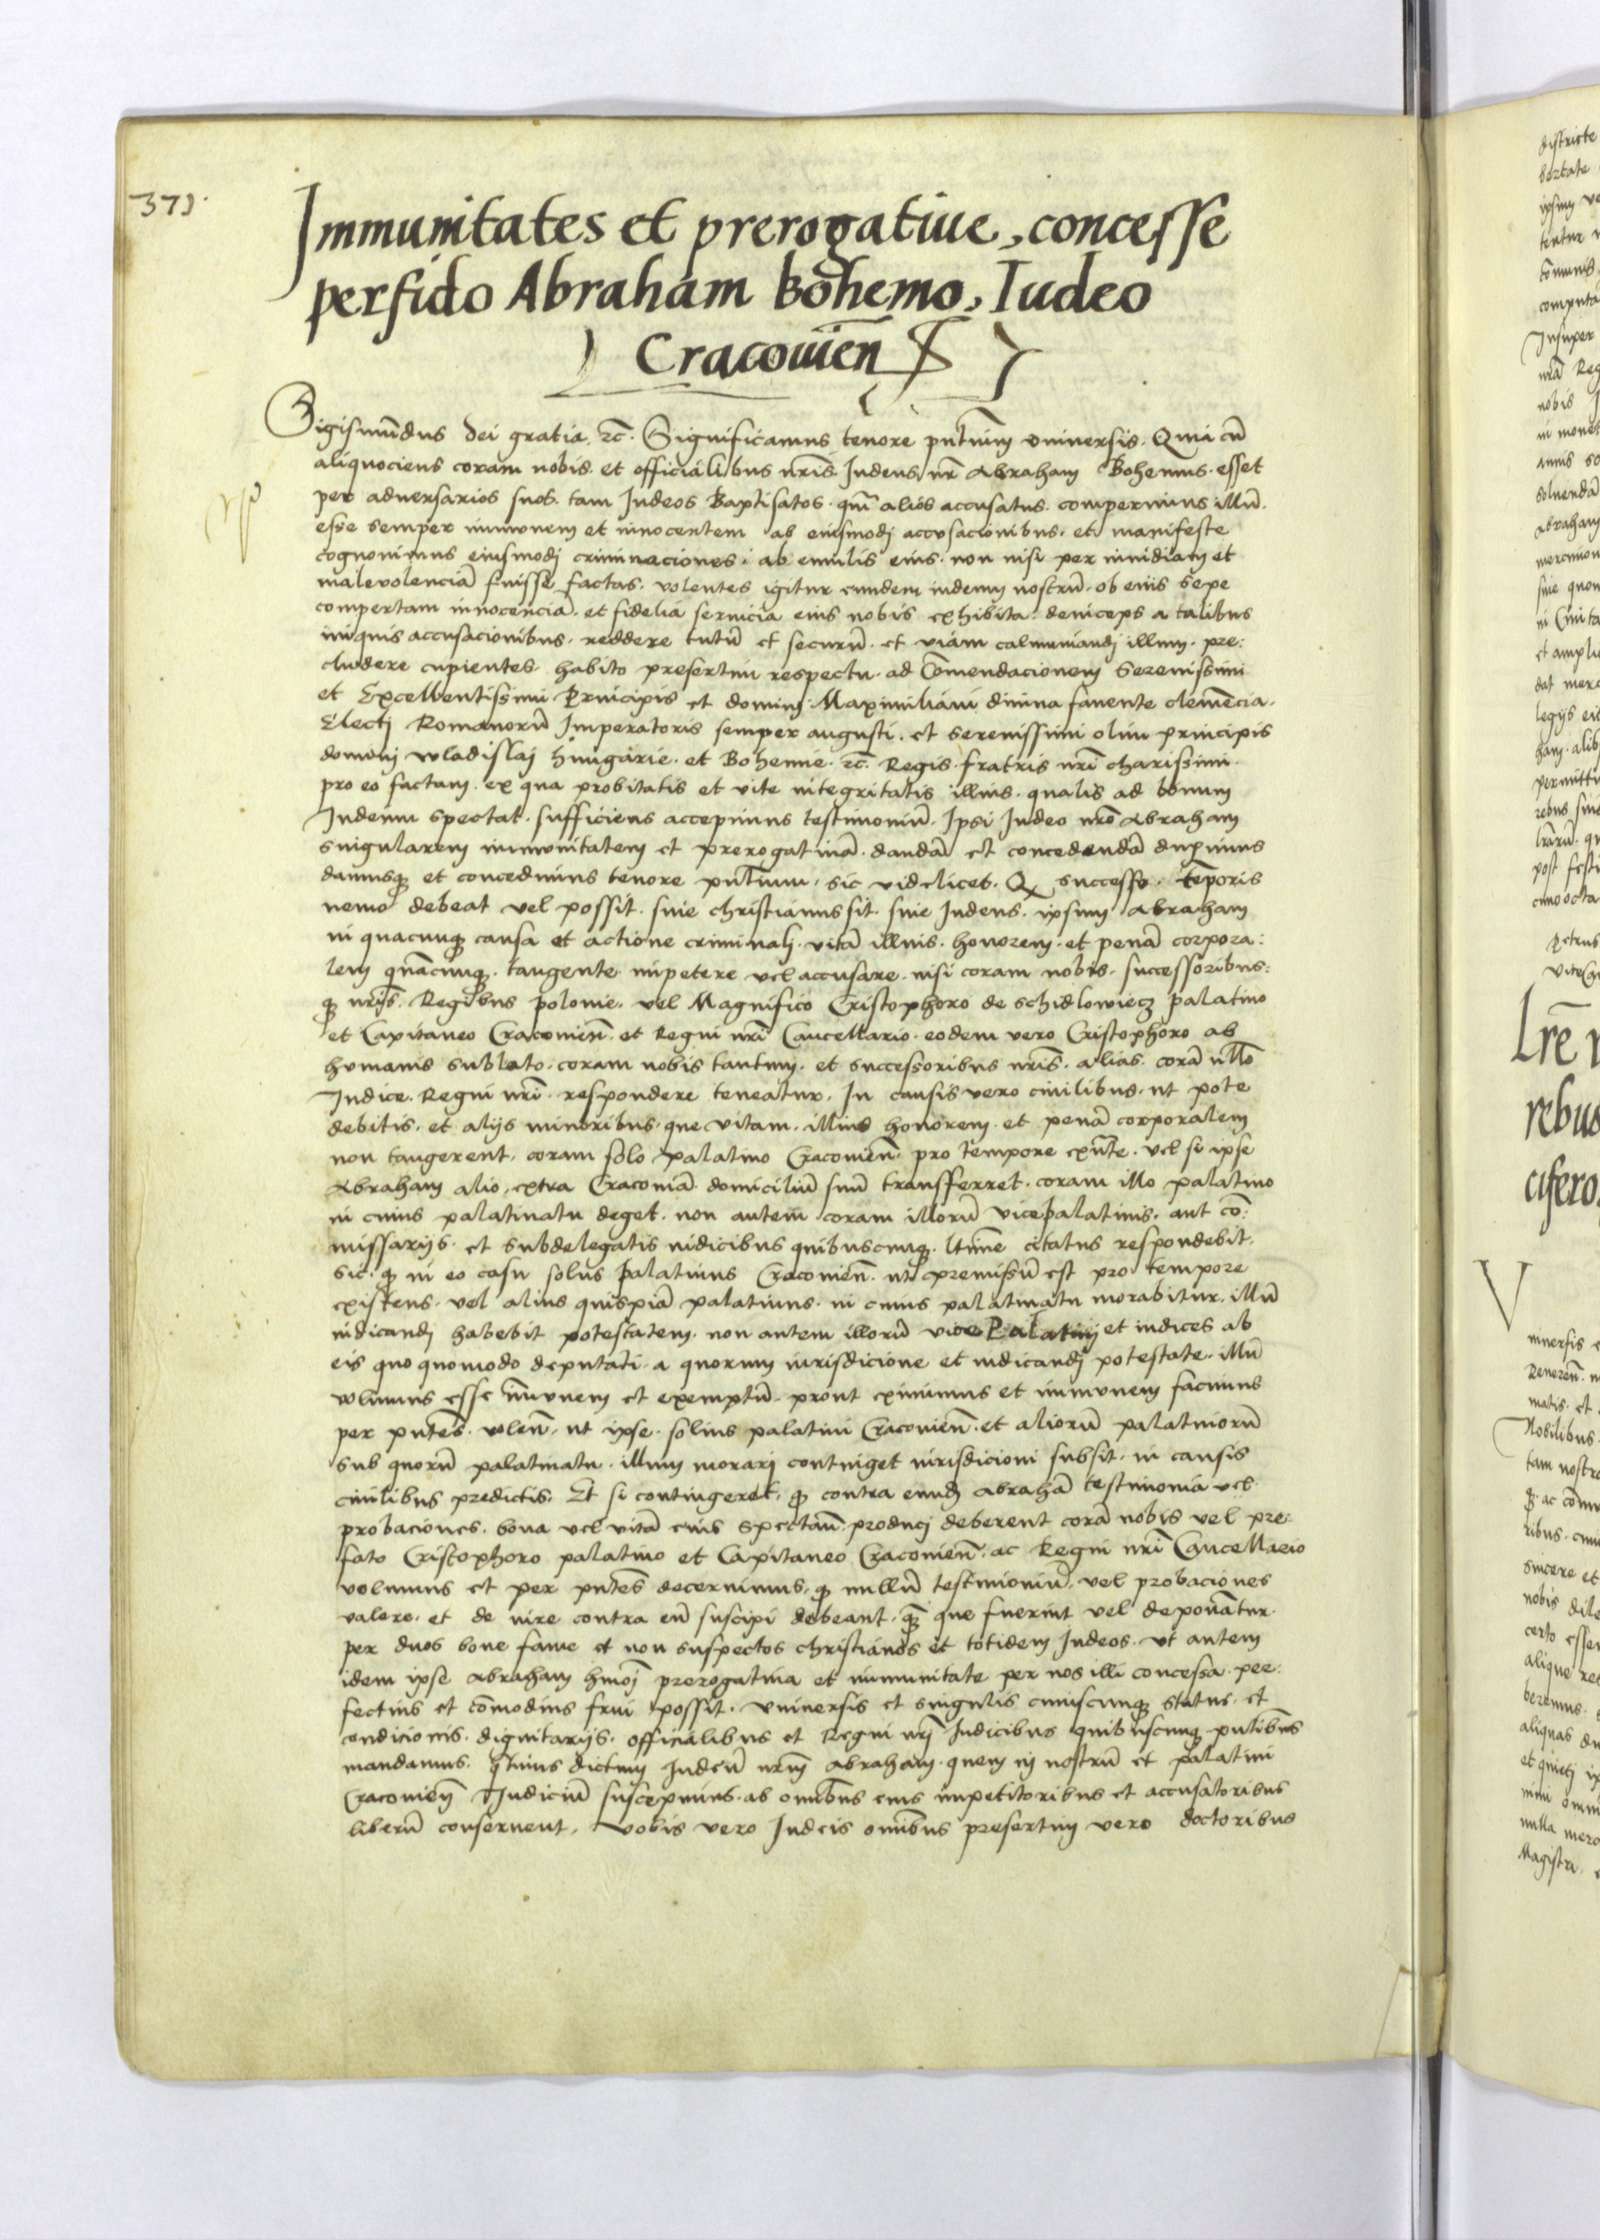 371.
Immunitates et prerogatiue, concesse
perfido Abraham Bohemo, Iudeo
Cracouień
Sigismūdus dei gratia. ꝛc̄. Significamus tenore pntium vniuersis. Quia cū
aliquociens coram nobis. et officialibus nr̄is Iudeus nr̄ Abraham Bohemus. esset
per aduersarios suos. tam Iudeos Baptisatos. qm̄ alios accusatus. comperimus illū.
esse semper immunem et innocentem ab eiusmodj accusacionibus. et manifeste
cognouimus eiusmodj criminaciones. ab emulis eius. non nisi per inuidiam et
maleuolenciā fuisse factas. volentes igitur eundem iudeum nostrū. ob eius sepe
compertam innocenciā. et fidelia seruicia eius nobis exhibita. deinceps a talibus
iniquis accusacionibus. reddere tutū et securū. et viam calumniandj illum. pre:
cludere cupientes. habito presertim respectu. ad Comendacionem Serenissimi
et Excellentissimi Principis et dominj Maximiliani diuina fauente clemēcia.
Electj Romanorū Imperatoris semper augusti. et serenissimi olim principis
dominj wladislaj hungarie. et Bohemie. ꝛc̄. Regis. fratris nr̄i charissimi.
pro eo factam. ex qua probitatis et vite integritatis illius. qualis ad bonum
Iudeum spectat. sufficiens accepimus testimoniū. Ipsi Iudeo nr̄o Abraham
singularem immunitatem et prerogatiuā. dandā et concedendā duximus
damusqꝫ et concedimus tenore pntium. sic videlicet. Qꝫ successu. tēporis
nemo debeat vel possit. siue christianus sit. siue Iudeus. ipsum Abraham
in quacunqꝫ causa et actione criminalj. vitā illius. honorem. et penā corpora:
lem qnācunqꝫ. tangente impetere vel accusare. nisi coram nobis. successoribus:
qꝫ nr̄is. Regibus polonie. vel Magnifico Cristophoro de schidlowiecz palatino
et Capitaneo Cracouień. et Regni nr̄i Cancellario. eodem vero Cristophoro ab
humanis sublato. coram nobis tantum. et successoribus nr̄is. alias. corā nllo
Iudice. Regni nr̄i. respondere teneatur. In causis vero ciuilibus. ut pote
debitis. et alijs minoribus. que vitam. illius honorem. et penā corporalem
non tangerent. coram solo palatino Cracouień. pro tempore exnte. vel si ipse
Abraham alio. extra Cracouiā. domiciliū suū transferret. coram illo palatino
in cuius palatinatu deget. non autem coram illorū vicepalatinis. aut cō:
missarijs. et subdelegatis iudicibus quibuscunqꝫ. ltime citatus respondebit.
sic. qꝫ in eo casu solus palatinus Cracouień. ut premissū est pro tempore
existens. vel alius quispiā palatinus. in cuius palatinatu morabitur. illū
iudicandj habebit potestatem. non autem illorū vice Palatinj et iudices ab
eis quo quomodo deputati. a quorum iurisdicione et iudicandj potestate. illū
volumus esse imunem et exemptū. prout eximimus et immunem facimus
per pntes. volen̄. ut ipse. solius palatini Cracouień. et aliorū palatinorū
sub quorū palatinatu. illum morarj continget iurisdicioni subsit. in causis
ciuilibus predictis. Et si contingeret. qꝫ contra eundj Abrahā testimonia vel
probaciones. bona vel vitā eius spectan̄. producj deberent corā nobis vel pre:
fato Cristophoro palatino et Capitaneo Cracouień. ac Regni nr̄i Cancellario
volumus et per pntes decernimus. qꝫ nullū testimoniū. vel probaciones
valere. et de iure contra eū suscipi debeant. qꝫ que fuerint vel deponātur.
per duos bone fame et non suspectos christianos et totidem Iudeos. Ut autem
idem ipse Abraham hmoj prerogatiua et immunitate per nos illi concessa. per:
fectius et cōmodius frui possit. vniuersis et singulis cuiuscunqꝫ status. et
condicionis. dignitarijs. officialibus et Regni nr̄j Iudicibus quibuscunqꝫ. pntibus
mandamus. qtinus dictum Iudeū nr̄m Abraham. quem in nostrū et palatini
Cracouień Iudiciū suscepimus. ab omibus eius impetitoribus et accusatoribus
liberū conseruent. vobis vero Iudeis omibus presertim vero doctoribus